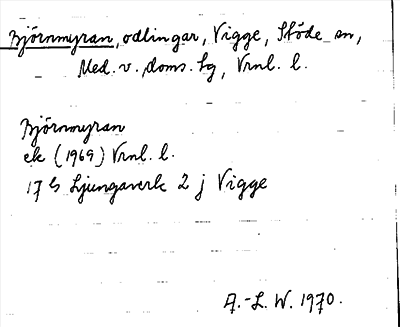 Björnmyran, odlingar, Vigge, Stöde sn,
Med. v. doms. sg, Vrnl. l.
Björnmyran
ek (1969) Vrnl. l.
17 G Ljungaverk 2 j Vigge
A.-L. W. 1970.